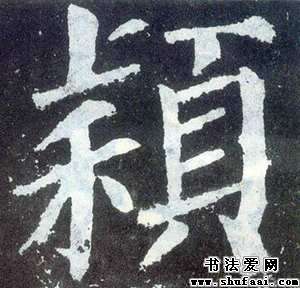 穎
书法爱网
www.shufaai.com